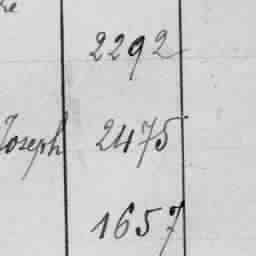 2292
Joseph 2475
1657